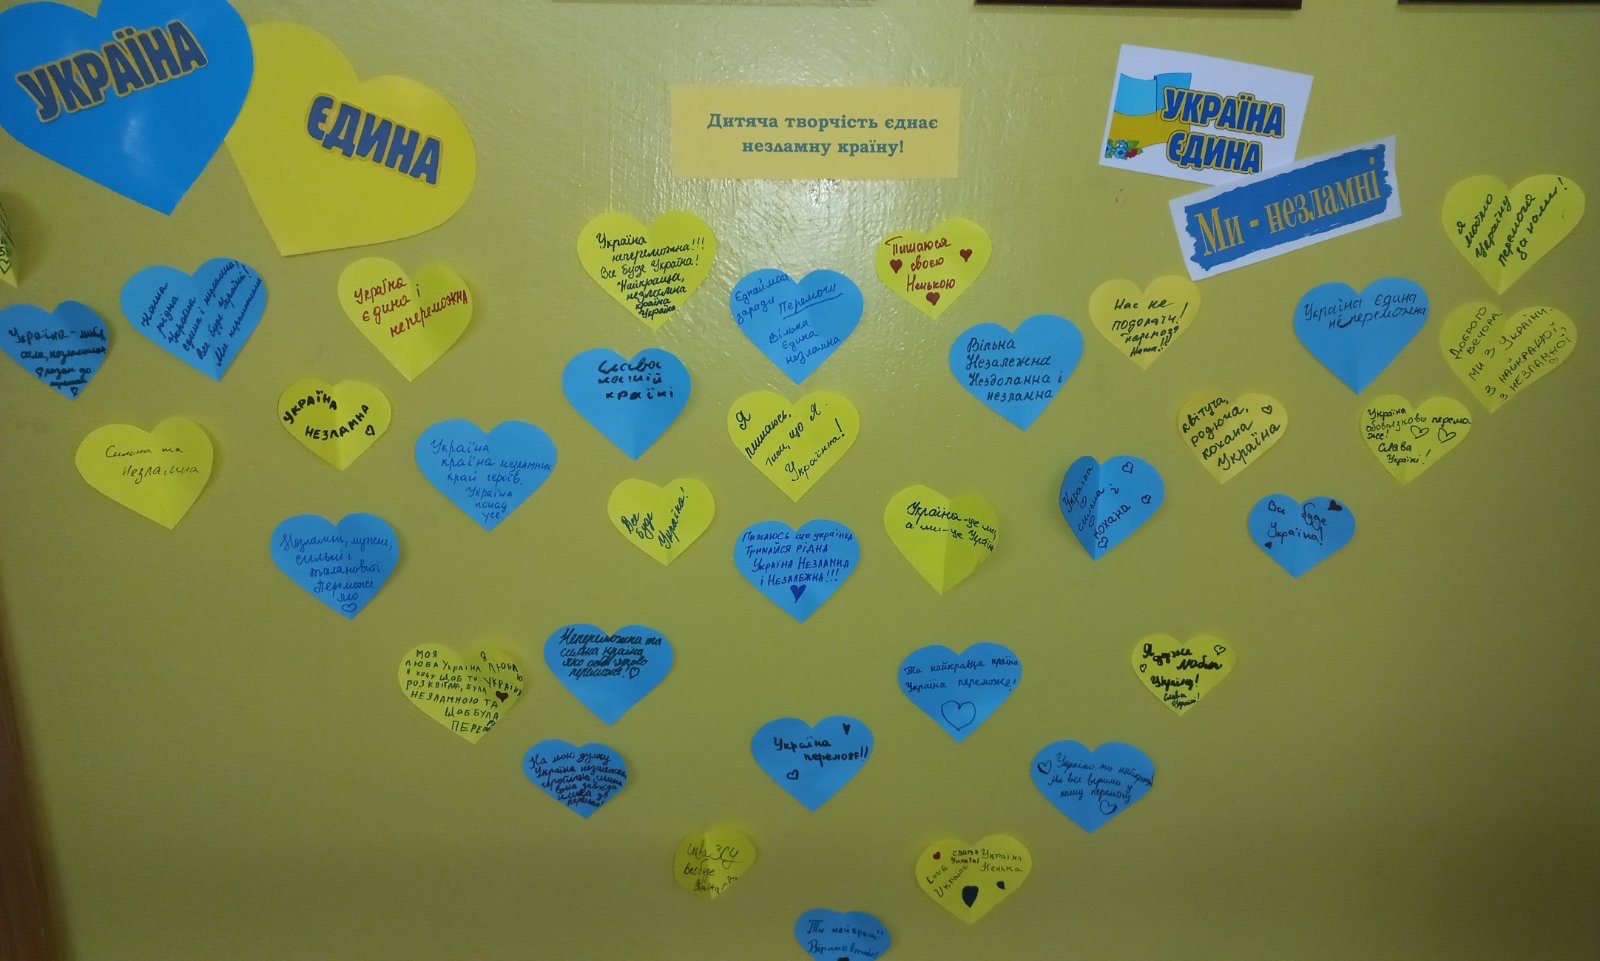 УКРАЇНА
ЄДИНА
Дитяча творчість єднає
незламну країну!
УКРАЇНА
ЄДИНА
Ми - незламні
я
люблю
Україну
перемога
за нами!
Україна
непереможна!!!
Все буде Україна!
Найкраща,
незламна
країна
Україна
Пишаюся
своєю
Ненькою
Єднаймося
заради Перемоги
Вільна
Єдина
незламна
Україна
Єдина і
непереможна
Нас не
подолати!
перемога
наша!!!
Україна Єдина
непереможна
Доброго
вечора.
Ми з України.
з найкращої,
з незламної
Вільна
Незалежна
Нездоланна і
незламна
Слава
нашій
країні
Україна
незламна
Сильна та
Незламна
Україна
країна незламних
край героїв.
Україна
понад
усе
Я
пишаюсь,
тим, що я
Українка!
квітуча,
родюча,
кохана
Україна
Україна
обов'язково перемо
же!
Слава
Україні!
Україна
сильна і
кохана
Все буде
Україна!
Все
буде
Україна!
Україна-це ми,
а ми-це Україна
Пишаюсь що українка
Тримайся рідна
Україна Незламна
і Незалежна!!!
Незламні, мужні,
сильні і
талановиті.
Переможе
мо
Непереможна та
сильна країна
яка обов'язково
переможе!
Ти найкраща країна
Україна переможе!
Я дуже
люблю
Україну!
Слава
Україні!
моя
люба Україна
я хочу щоб ти
розквітла, була
незламною та
щоб була
Я люблю
Україну
На мою думку
Україна незалежна,
вона завжди
Україна
переможе!!
Ми всі віримо у
нашу перемогу
Слава ЗСУ
Все буде
Україна!
слава
Україні
Україна
Ненька
LOVE
Ukraine
Ти найкращ!!